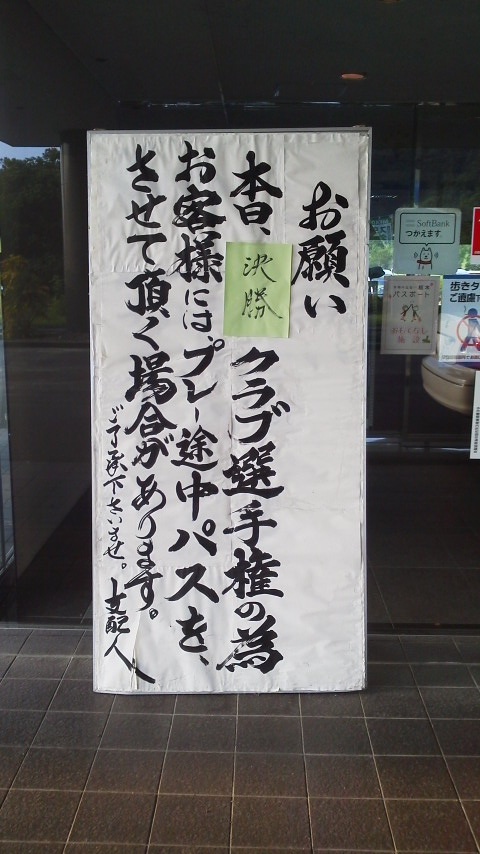 お願い
本日、決勝クラブ選手権の為
お客様には、プレー途中パスを、
させて頂く場合があります。
ご了承下さいませ。支配人
SoftBank
つかえます。
パスポート
歩きタ
ご遠慮